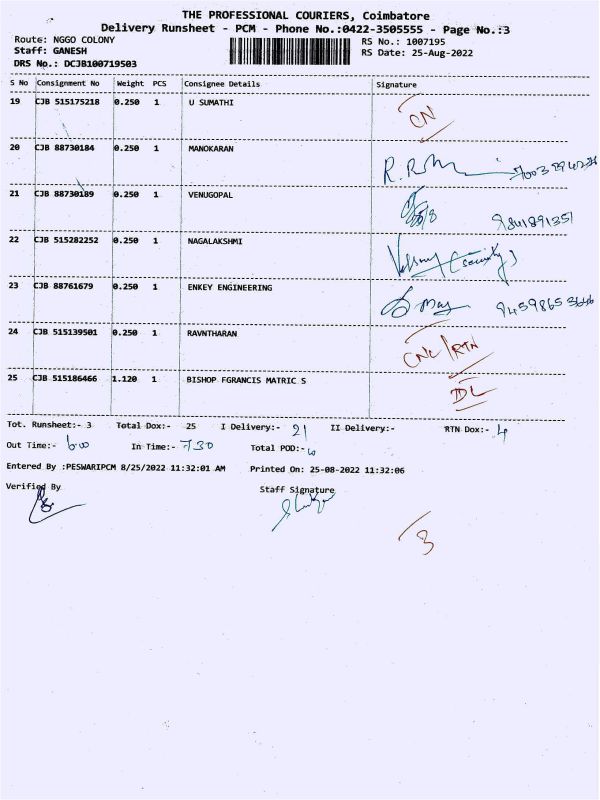 THE PROFESSIONAL COURIERS, Coimbatore
Delivery Runsheet - PCM - Phone No.:0422-3505555 - Page No.:3
Route: NGGO COLONY RS No.: 1007195
Staff: GANESH RS Date: 25-Aug-2022
DRS No.: DCJB100719503
S No Consignment No Weight PCS Consignee Details Signature
19 CJB 515175218 0.250 1 U SUMATHI CN
20 CJB 88730184 0.250 1 MANOKARAN
21 CJB 88730189 0.250 1 VENUGOPAL 9841891351
22 CJB 515282252 0.250 1 NAGALAKSHMI (Security)
23 CJB 88761679 0.250 1 ENKEY ENGINEERING
24 CJB 515139501 0.250 1 RAVNTHARAN CNC/RTN
25 CJB 515186466 1.120 1 BISHOP FGRANCIS MATRIC S DL
Tot. Runsheet:- 3 Total Dox:- 25 I Delivery:- 21 II Delivery:- RTN Dox:- 4
Out Time:- 600 In Time:- 730 Total POD:-
Entered By :PESWARIPCM 8/25/2022 11:32:01 AM Printed On: 25-08-2022 11:32:06
Verified By Staff Signature
3